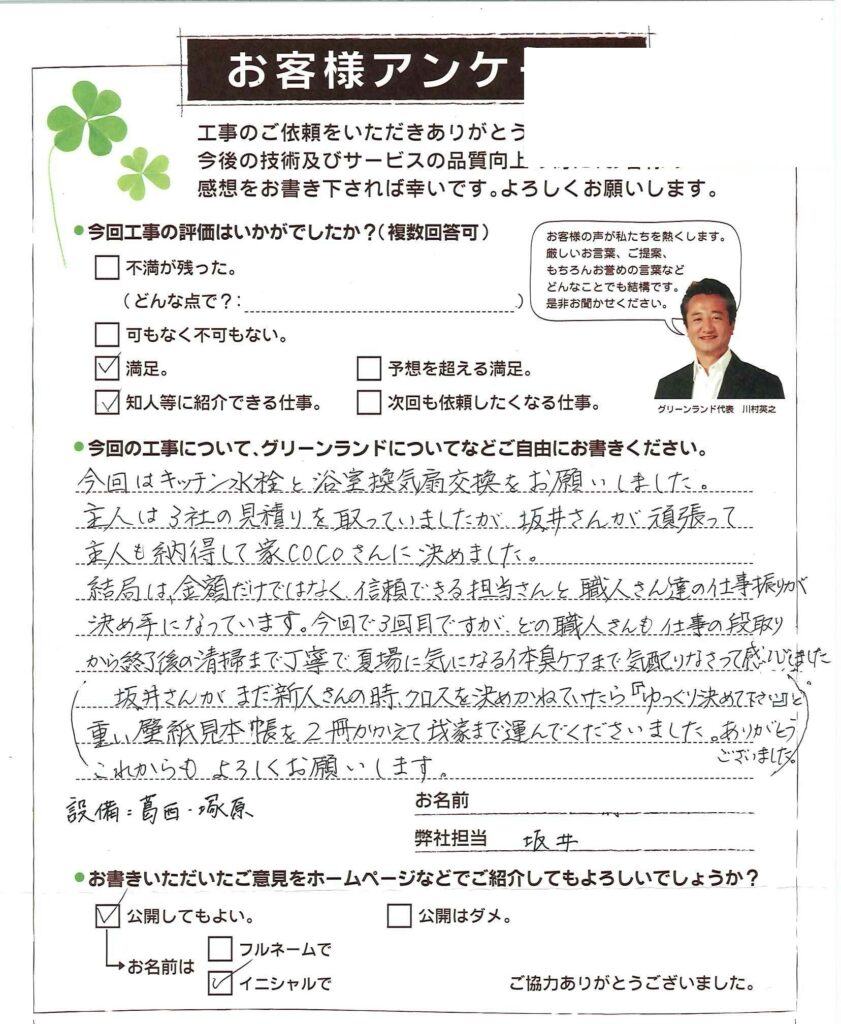 お客様アンケ
工事のご依頼をいただきありがとう
今後の技術及びサービスの品質向上
感想をお書き下されば幸いです。よろしくお願いします。
今回工事の評価はいかがでしたか？(複数回答可)
不満が残った。
(どんな点で？: )
可もなく不可もない。
満足。
予想を超える満足。
知人等に紹介できる仕事。
次回も依頼したくなる仕事。
お客様の声が私たちを熱くします。
厳しいお言葉、ご提案、
もちろんお誉めの言葉など
どんなことでも結構です。
是非お聞かせください。
グリーンランド代表 川村英之
今回の工事について、グリーンランドについてなどご自由にお書きください。
今回はキッチン水栓と浴室換気扇交換をお願いしました。
主人は3社の見積りを取っていましたが坂井さんが頑張って
主人も納得して家COCOさんに決めました。
結局は、金額だけではなく、信頼できる担当さんと職人さん達の仕事振りが
決め手になっています。今回で3回目ですが、どの職人さんも仕事の段取り
から終了後の清掃まで丁寧で夏場に気になる体臭ケアまで気配りなさって感心しました
(坂井さんがまだ新人さんの時、クロスを決めかねていたら『ゆっくり決めて下さい』と
重い壁紙見本帳を2冊かかえて我家まで運んでくださいました。ありがとう
ございました。)
これからもよろしくお願いします。
設備：葛西・塚原
お名前
弊社担当 坂井
お書きいただいたご意見をホームページなどでご紹介してもよろしいでしょうか？
公開してもよい。
公開はダメ。
お名前は
フルネームで
イニシャルで
ご協力ありがとうございました。